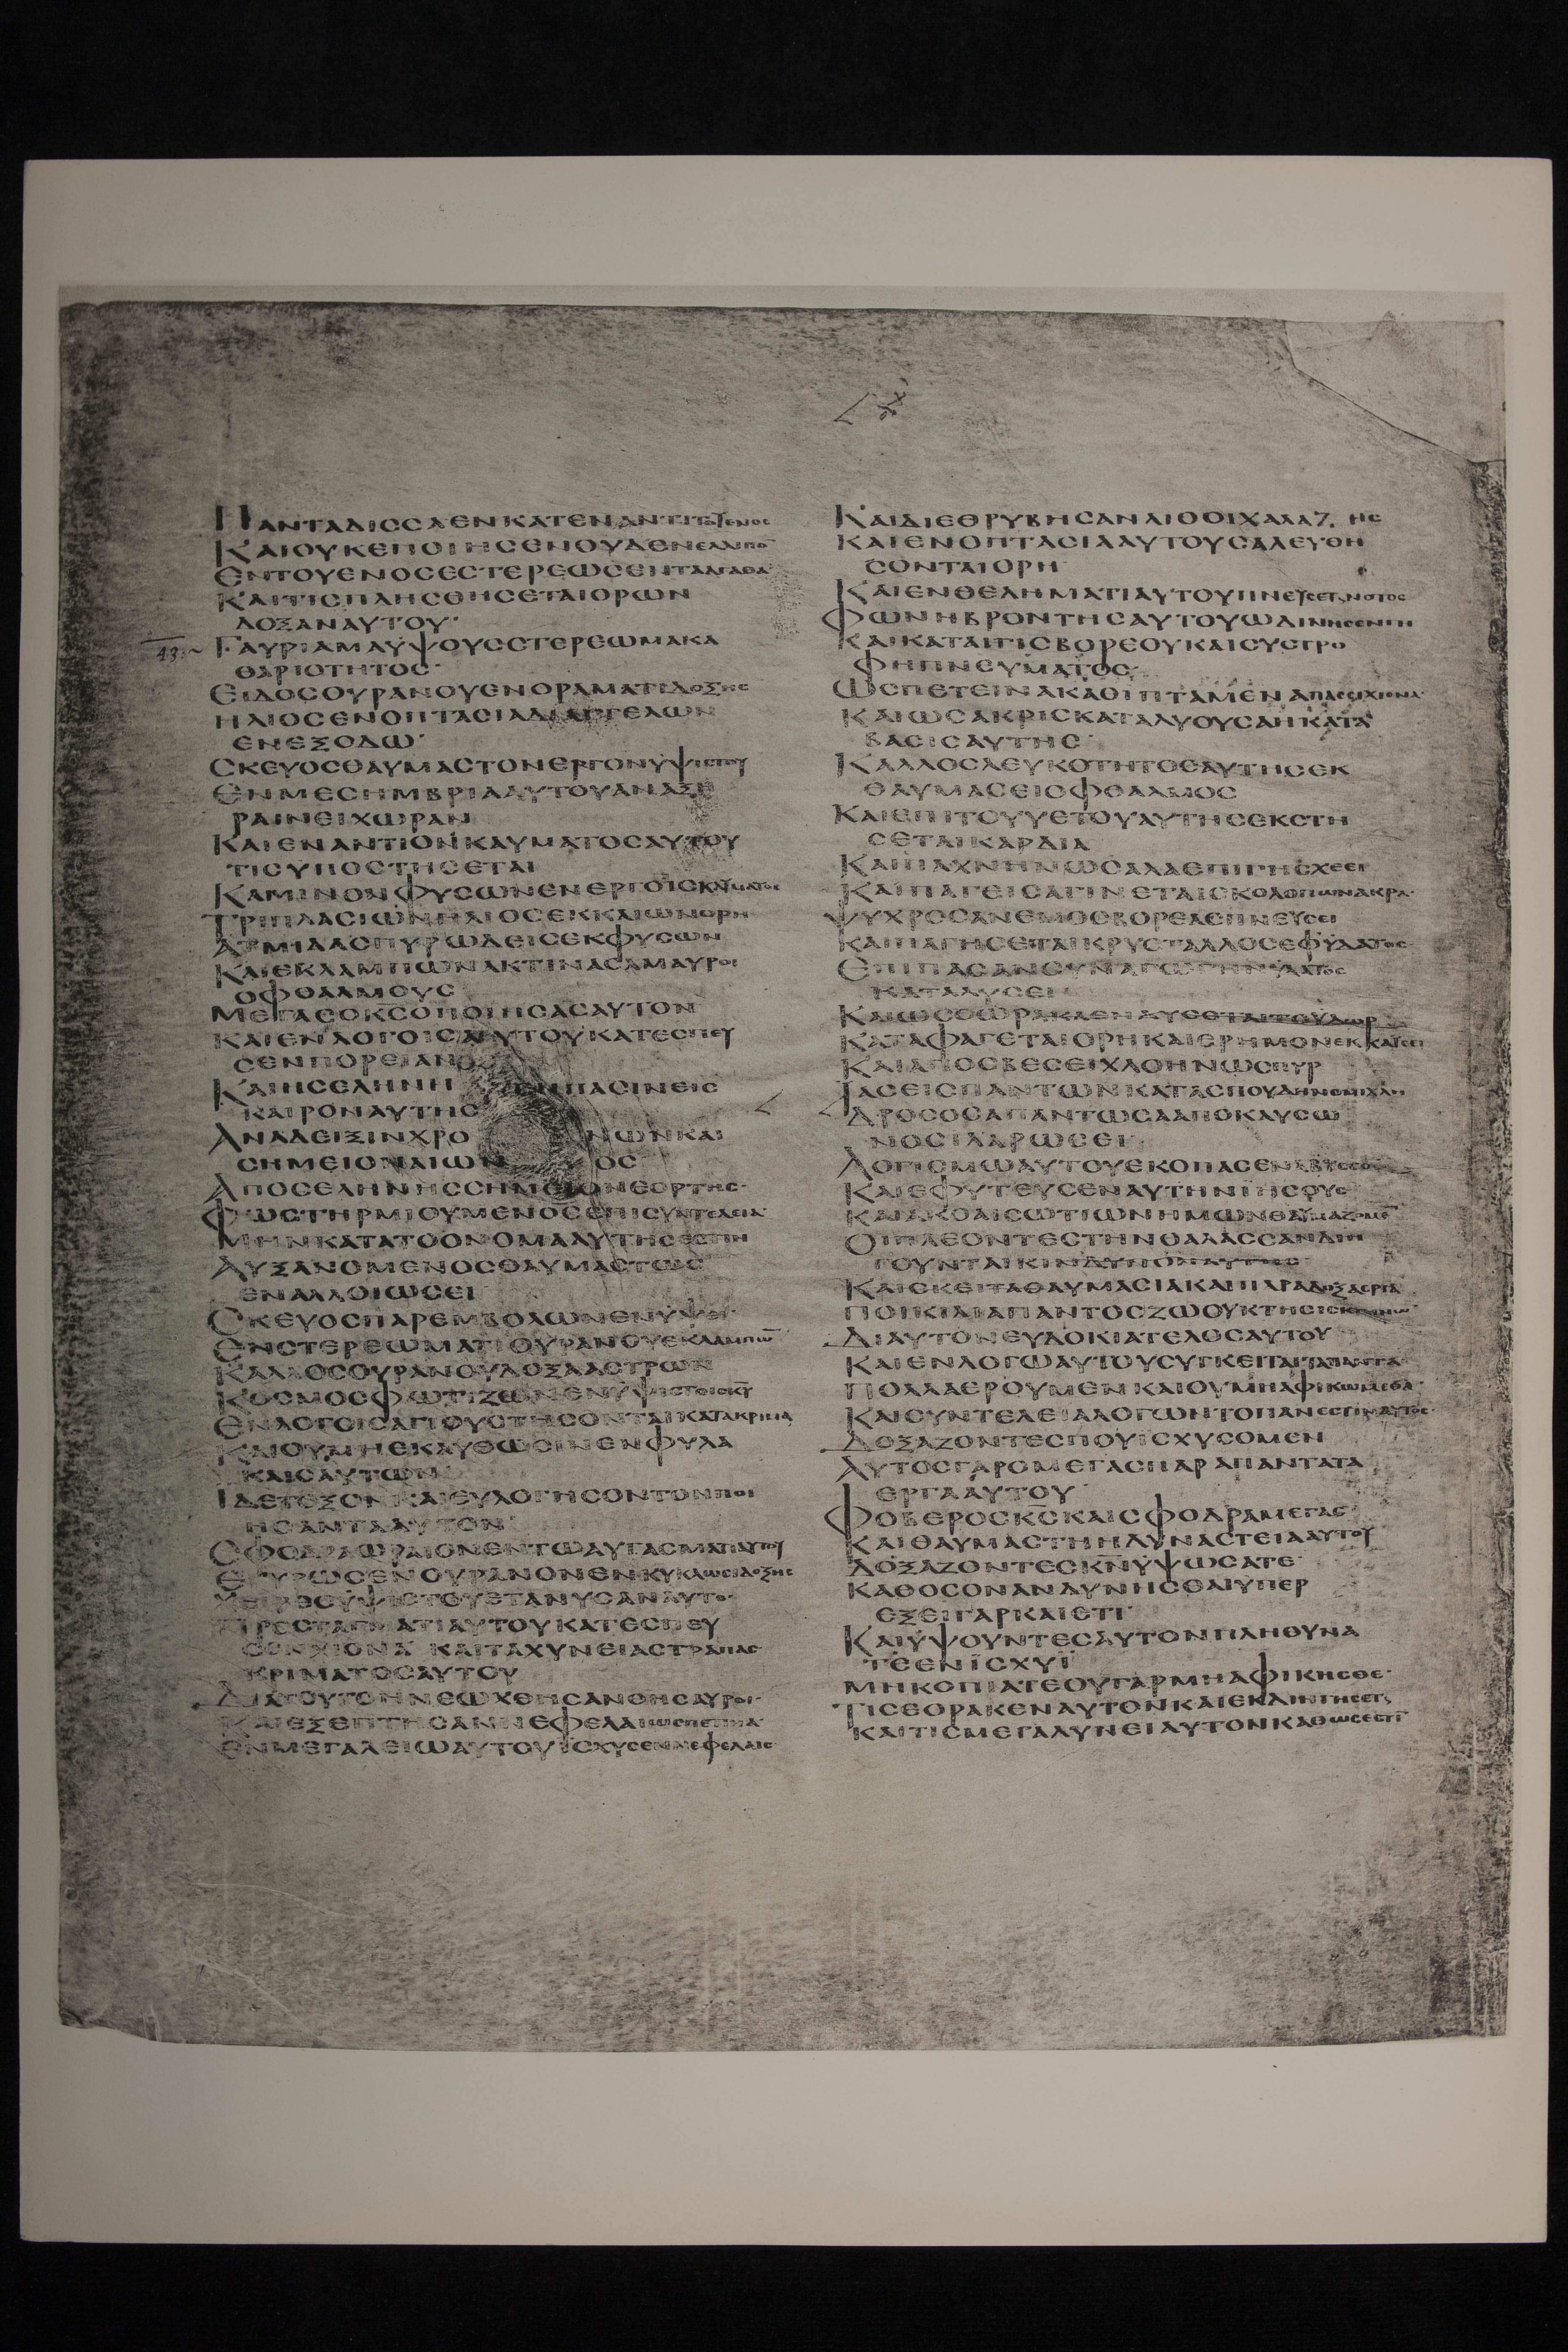 ΠΑΝΤΑΔΙCCΑΕΝΚΑΤΕΝΑΝΤΙΤΟΥΕΝΟC
ΚΑΙΟΥΚΕΠΟΙΗCΕΝΟΥΔΕΝΕΛΛΙΠΟ̅
ΕΝΤΟΥΕΝΟCΕCΤΕΡΕΩCΕΝΤΑΑΓΑΘΑ
ΚΑΙΤΙCΠΛΗCΘΗCΕΤΑΙΟΡΩΝ
ΔΟΞΑΝΑΥΤΟΥ·
43:~ ΓΑΥΡΙΑΜΑΥΨΟΥCCΤΕΡΕΩΜΑΚΑ
ΘΑΡΙΟΤΗΤΟC·
ΕΙΔΟCΟΥΡΑΝΟΥΕΝΟΡΑΜΑΤΙΔΟΞΗC
ΗΛΙΟCΕΝΟΠΤΑCΙΑΔΙΑΓΓΕΛΩΝ
ΕΝΕΞΟΔΩ·
CΚΕΥΟCΘΑΥΜΑCΤΟΝΕΡΓΟΝΥΨΙCΤΟΥ
ΕΝΜΕCΗΜΒΡΙΑΑΥΤΟΥΑΝΑΞΗ
ΡΑΙΝΕΙΧΩΡΑΝ
ΚΑΙΕΝΑΝΤΙΟΝΚΑΥΜΑΤΟCΑΥΤΟΥ
ΤΙCΥΠΟCΤΗCΕΤΑΙ
ΚΑΜΙΝΟΝΦΥCΩΝΕΝΕΡΓΟΙCΚΑΥΜΑΤΟC
ΤΡΙΠΛΑCΙΩΝΗΛΙΟCΕΚΚΑΙΩΝΟΡΗ
ΑΤΜΙΔΑCΠΥΡΩΔΕΙCΕΚΦΥCΩΝ
ΚΑΙΕΚΛΑΜΠΩΝΑΚΤΙΝΑCΑΜΑΥΡΟΙ
ΟΦΘΑΛΜΟΥC
ΜΕΓΑCΟΚ̅C̅ΟΠΟΙΗCΑCΑΥΤΟΝ
ΚΑΙΕΝΛΟΓΟΙCΑΥΤΟΥΚΑΤΕCΠΕΥ
CΕΝΠΟΡΕΙΑΝ
ΚΑΙΗCΕΛΗΝΗ ΕΝΠΑCΙΝΕΙC
ΚΑΙΡΟΝΑΥΤΗC
ΑΝΑΔΕΙΞΙΝΧΡΟ ΝΩΝΚΑΙ
CΗΜΕΙΟΝΑΙΩΝ ΟC
ΑΠΟCΕΛΗΝΗCCΗΜΕΙΟΝΕΟΡΤΗC·
ΦΩCΤΗΡΜΙΟΥΜΕΝΟCΕΠΙCΥΝΤΕΛΕΙΑ·
ΜΗΝΚΑΤΑΤΟΟΝΟΜΑΑΥΤΗCΕCΤΙΝ
ΑΥΞΑΝΟΜΕΝΟCΘΑΥΜΑCΤΩC
ΕΝΑΛΛΟΙΩCΕΙ
CΚΕΥΟCΠΑΡΕΜΒΟΛΩΝΕΝΥΨΕΙ·
ΕΝCΤΕΡΕΩΜΑΤΙΟΥΡΑΝΟΥΕΚΛΑΜΠΩ̅
ΚΑΛΛΟCΟΥΡΑΝΟΥΔΟΞΑΑCΤΡΩΝ
ΚΟCΜΟCΦΩΤΙΖΩΝΕΝΥΨΙCΤΟΙCΚ̅Υ̅
ΕΝΛΟΓΟΙCΑΓΙΟΥCΤΗCΟΝΤΑΙΚΑΤΑΚΡΙΜΑ
ΚΑΙΟΥΜΗΕΚΛΥΘΩCΙΝΕΝΦΥΛΑ
ΚΑΙCΑΥΤΩΝ
ΙΔΕΤΟΞΟΝΚΑΙΕΥΛΟΓΗCΟΝΤΟΝΠΟΙ
ΗCΑΝΤΑΑΥΤΟΝ
CΦΟΔΡΑΩΡΑΙΟΝΕΝΤΩΑΥΓΑCΜΑΤΙΑΥΤΟΥ
ΕΓΥΡΩCΕΝΟΥΡΑΝΟΝΕΝΚΥΚΛΩCΕΙΔΟΞΗC
ΧΕΙΡΕCΥΨΙCΤΟΥΕΤΑΝΥCΑΝΑΥΤΟ·
ΠΡΟCΤΑΓΜΑΤΙΑΥΤΟΥΚΑΤΕCΠΕΥ
CΕΝΧΙΟΝΑ ΚΑΙΤΑΧΥΝΕΙΑCΤΡΑΠΑC
ΚΡΙΜΑΤΟCΑΥΤΟΥ
ΔΙΑΤΟΥΤΟΗΝΕΩΧΘΗCΑΝΘΗCΑΥΡΟΙ·
ΚΑΙΕΞΕΠΤΗCΑΝΝΕΦΕΛΑΙΩCΠΕΤΙΝΑ·
ΕΝΜΕΓΑΛΕΙΩΑΥΤΟΥΙCΧΥCΕΝΝΕΦΕΛΑΙC
ΚΑΙΔΙΕΘΡΥΒΗCΑΝΛΙΘΟΙΧΑΛΑΖΗC
ΚΑΙΕΝΟΠΤΑCΙΑΑΥΤΟΥCΑΛΕΥΘΗ
CΟΝΤΑΙΟΡΗ
ΚΑΙΕΝΘΕΛΗΜΑΤΙΑΥΤΟΥΠΝΕΥCΕΤΝΟΤΟC
ΦΩΝΗΒΡΟΝΤΗCΑΥΤΟΥΩΔΙΝΗCΕΝΓΗ
ΚΑΙΚΑΤΑΙΓΙCΒΟΡΕΟΥΚΑΙCΥCΤΡΟ
ΦΗΠΝΕΥΜΑΤΟC·
ΩCΠΕΤΕΙΝΑΚΑΘΙΠΤΑΜΕΝΑΠΑCCΕΙΧΙΟΝΑ·
ΚΑΙΩCΑΚΡΙCΚΑΤΑΛΥΟΥCΑΗΚΑΤΑ
ΒΑCΙCΑΥΤΗC·
ΚΑΛΛΟCΛΕΥΚΟΤΗΤΟCΑΥΤΗCΕΚ
ΘΑΥΜΑCΕΙΟΦΘΑΛΜΟC
ΚΑΙΕΠΙΤΟΥΥΕΤΟΥΑΥΤΗCΕΚCΤΗ
CΕΤΑΙΚΑΡΔΙΑ
ΚΑΙΠΑΧΝΗΝΩCΑΛΑΕΠΙΓΗCΧΕΕΙ
ΚΑΙΠΑΓΕΙCΑΓΙΝΕΤΑΙCΚΟΛΟΠΩΝΑΚΡΑ·
ΨΥΧΡΟCΑΝΕΜΟCΒΟΡΕΑCΠΝΕΥCΕΙ
ΚΑΙΠΑΓΗCΕΤΑΙΚΡΥCΤΑΛΛΟCΕΦΥΔΑΤΟC
ΕΠΙΠΑCΑΝCΥΝΑΓΩΓΗΝΥΔΑΤΟC
ΚΑΤΑΛΥCΕΙ
ΚΑΙΩCΘΩΡΑΚΑΕΝΔΥCΕΤΑΙΤΟΥΔΩΡ
ΚΑΤΑΦΑΓΕΤΑΙΟΡΗΚΑΙΕΡΗΜΟΝΕΚΚΑΥCΕΙ
ΚΑΙΑΠΟCΒΕCΕΙΧΛΟΗΝΩCΠΥΡ
ΙΑCΕΙCΠΑΝΤΩΝΚΑΤΑCΠΟΥΔΗΝΟΜΙΧΛΗ
ΔΡΟCΟCΑΠΑΝΤΩCΑΑΠΟΚΑΥCΩ
ΝΟCΙΛΑΡΩCΕΙ
ΛΟΓΙCΜΩΑΥΤΟΥΕΚΟΠΑCΕΝΑΒΥCCΟ
ΚΑΙΕΦΥΤΕΥCΕΝΑΥΤΗΝΙΗCΟΥC
ΚΑΙΑΚΟΑΙCΩΤΙΩΝΗΜΩΝΘΑΥΜΑΖΟΜΕ̅
ΟΙΠΛΕΟΝΤΕCΤΗΝΘΑΛΑCCΑΝΔΙΗ
ΓΟΥΝΤΑΙΚΙΝΔΥΝΟΝΑΥΤΗC
ΚΑΙΕΚΕΙΤΑΘΑΥΜΑCΙΑΚΑΙΠΑΡΑΔΟΞΑΕΡΓΑ
ΠΟΙΚΙΛΙΑΠΑΝΤΟCΖΩΟΥΚΤΗCΙC
ΔΙΑΥΤΟΝΕΥΔΟΚΙΑΤΕΛΟCΑΥΤΟΥ
ΚΑΙΕΝΛΟΓΩΑΥΤΟΥCΥΓΚΕΙΤΑΙΤΑΠΑΝΤΑ
ΠΟΛΛΑΕΡΟΥΜΕΝΚΑΙΟΥΜΗΑΦΙΚΩΜΕΘΑ·
ΚΑΙCΥΝΤΕΛΕΙΑΛΟΓΩΝΤΟΠΑΝΕCΤΙΝΑΥΤΟC·
ΔΟΞΑΖΟΝΤΕCΠΟΥΙCΧΥCΟΜΕΝ
ΑΥΤΟCΓΑΡΟΜΕΓΑCΠΑΡΑΠΑΝΤΑΤΑ
ΕΡΓΑΑΥΤΟΥ
ΦΟΒΕΡΟCΚ̅C̅ΚΑΙCΦΟΔΡΑΜΕΓΑC·
ΚΑΙΘΑΥΜΑCΤΗΗΔΥΝΑCΤΕΙΑΑΥΤΟΥ
ΔΟΞΑΖΟΝΤΕCΚ̅Ν̅ΥΨΩCΑΤΕ·
ΚΑΘΟCΟΝΑΝΔΥΝΗCΘΑΙΥΠΕΡ
ΕΞΕΙΓΑΡΚΑΙΕΤΙ·
ΚΑΙΥΨΟΥΝΤΕCΑΥΤΟΝΠΛΗΘΥΝΑ
ΤΕΕΝΙCΧΥΙ
ΜΗΚΟΠΙΑΤΕΟΥΓΑΡΜΗΑΦΙΚΗCΘΕ·
ΤΙCΕΟΡΑΚΕΝΑΥΤΟΝΚΑΙΕΚΔΙΗΓΗCΕΤ
ΚΑΙΤΙCΜΕΓΑΛΥΝΕΙΑΥΤΟΝΚΑΘΩCΕCΤΙ̅